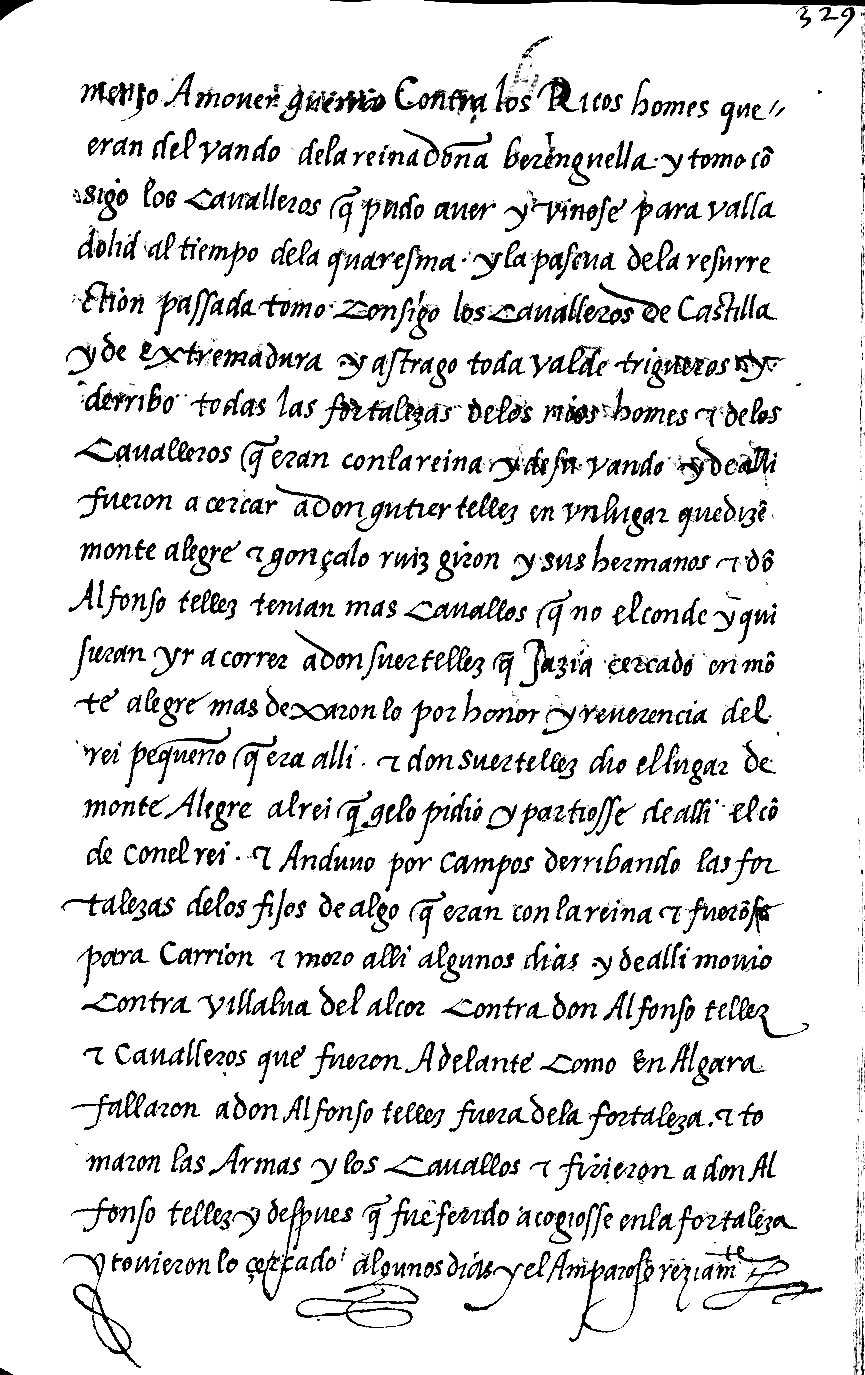 329
menzo Amover guerra Contra los Ricos homes que
eran del vando dela reina doña berenguella y tomo cõ
sigo los Cavalleros q̃ pudo auer y vinose para valla
dolid al tiempo dela quaresma y la pascua dela resurre
ction passada tomo Consigo los Cavalleros de Castilla
y de extremadura y astrago toda valde trigueros y
derribo todas las fortalezas delos ricos homes ⁊ delos
Cavalleros q̃ eran con la reina y de su vando y de alli
fueron a cercar a don gutier tellez en vn lugar que dizẽ
monte alegre ⁊ gonçalo ruiz giron y sus hermanos ⁊ dõ
Alfonso tellez tenian mas Cavallos q̃ no el conde y qui
sieran yr a correr a don suer tellez q̃ Jazia cercado en mõ
te alegre mas dexaron lo por honor y reverencia del
rei pequeño q̃ era alli. ⁊ don suer tellez dio el lugar de
monte Alegre al rei q̃ gelo pidio y partiosse de alli el cõ
de con el rei. ⁊ Anduuo por campos derribando las for
talezas delos fijos de algo q̃ eran con la reina ⁊ fuerõse
para Carrion ⁊ moro alli algunos dias y de alli movio
Contra villalva del alcor Contra don Alfonso tellez
⁊ Cavalleros que fueron Adelante Como En Algara
fallaron a don Alfonso tellez fuera dela fortaleza. ⁊ to
maron las Armas y los Cavallos ⁊ firieron a don Al
fonso tellez y despues q̃ fue ferido acogiosse en la fortaleza
y tovieron lo cercado algunos dias y el Amparose reziamte